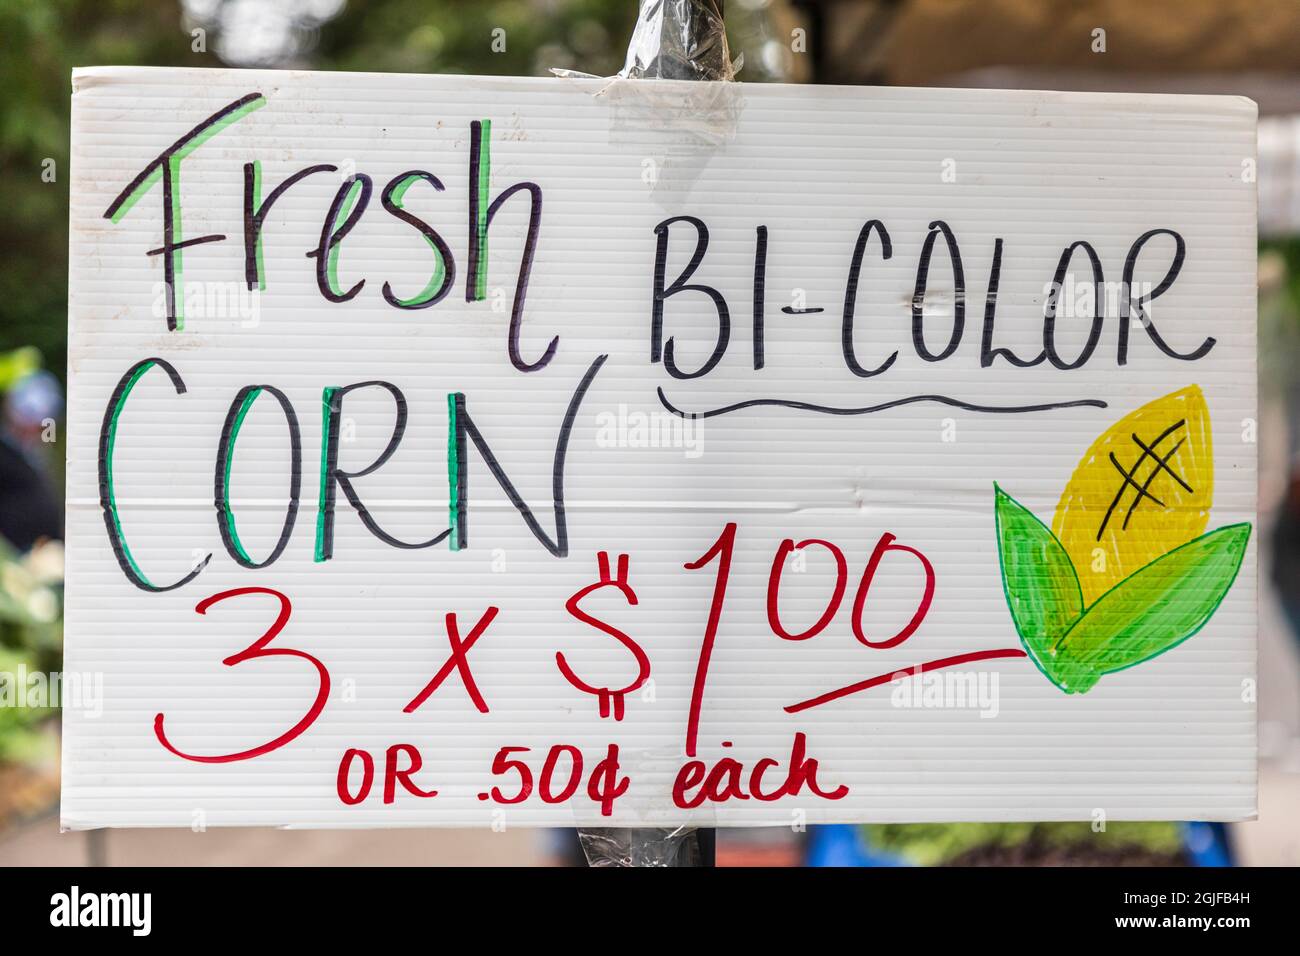 Fresh
BI-COLOR
CORN
3 x $1 00
OR .50¢ each
alamy
Image ID: 2GJFB4H
www.alamy.com